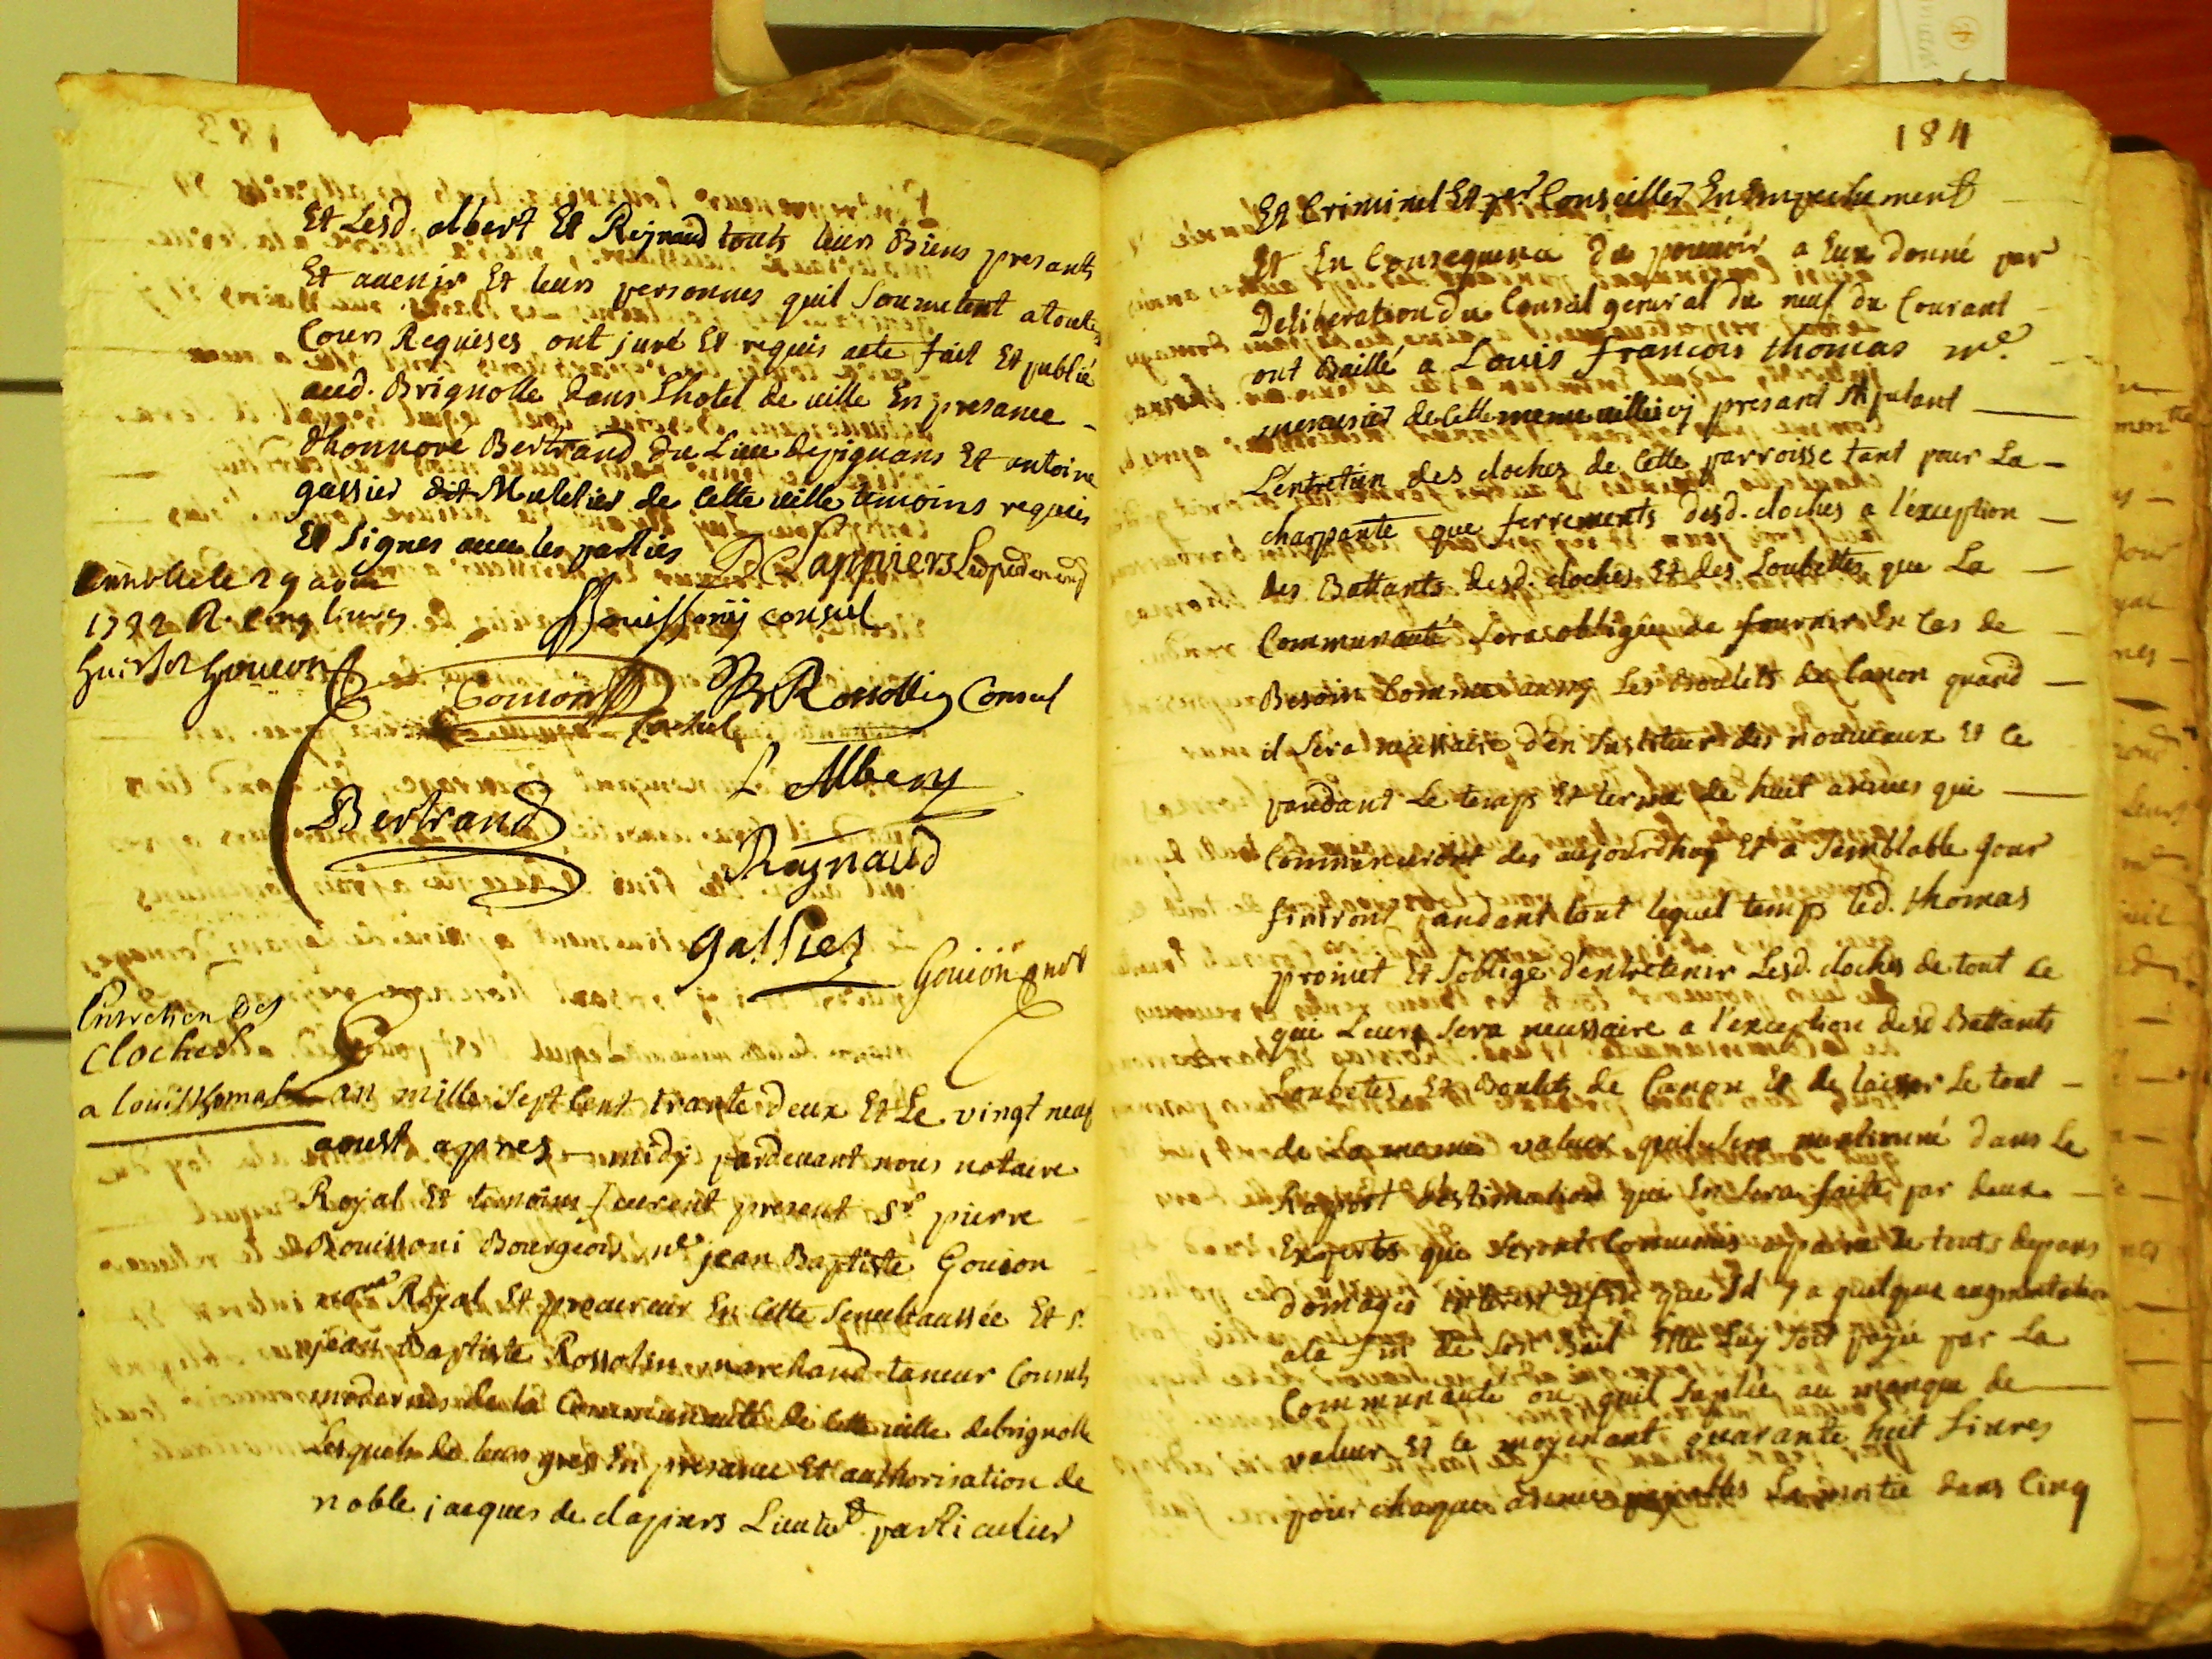 Et Lesd. albert Et Rejnaud touts leurs Biens presants
Et avenir Et leurs personnes quil Soumetent a toutes
Cours Requises ont juré Et requis acte fait Et publié
aud. Brignolle dans Lhotel de ville En presance
dhonnore Bertrand du Lieu de pignans Et antoine
gassier dit Muletier de Cette ville temoins requis
Et Signes avec les parties
DClappiers
Bouissonij consul
le 29 aout
1732 R. cinq livres
Goujon
Goujon
JB Rossollin Consul
Consul
L Albery
Bertrand
Raynaud
gassier
Goujon
Entretien des
Cloches
a louis thomas
L'an mille Sept Cent trante deux Et Le vingt neuf
aoust apres midy pardevant nous notaire
Royal Et temoins feurent present Sr pierre
Bouissoni Bourgeois me jean Baptiste Goujon
Royal Et procureur En Cette Senechaussée Et s.
jean Baptiste Rossolin marchand taneur Consuls
modernes de la Communauté de Cette ville debrignolle
Lesquels de leurs gres En presance Et authorisation de
noble jacques de clapiers Lieutt. particulier
184
Et Criminel Et per Conseiller En Empechement
Et En Consequence du pouvoir a Eux donné par
Deliberation du Conseil general du neuf du Courant
ont Baillé a Louis françois thomas me.
menusier de Cette meme ville icj presant Stipulant
L'entretien des cloches de Cette parroisse tant pour La
charpante que ferrements desd. cloches a l'exception
des Battants desd. cloches Et des Loubettes que La
Communauté Sera obligée de fournir En Cas de
Besoin Comme aussy Les Boulets de Canon quand
il Sera necessaire d'en Substituer des nouveaux Et Ce
pandant Le temps Et terme de huit années qui
Commenceront des aujourdhuy Et a Semblable jour
finiront pandant tout lequel temps led. thomas
promet Et S'oblige d'entretenir Lesd. cloches de tout Ce
que Leurs Sera necessaire a l'exception desd Battants
Loubetes, Et Boulets de Canon Et de laisser Le tout
de La meme valeur quil Sera mentionné dans Le
Raport d'estimation qui En Sera faite par deux
Experts que Seront Convenus a paine de touts depans
domages interest afin que Sil y a quelque augmentation
ala fin de Son Bail Elle Luy Soit payée par La
Communauté ou quil Suplée au manque de
valeur Et Ce moyenant quarante huit Livres
pour chaque années payables La moitié dans Cinq